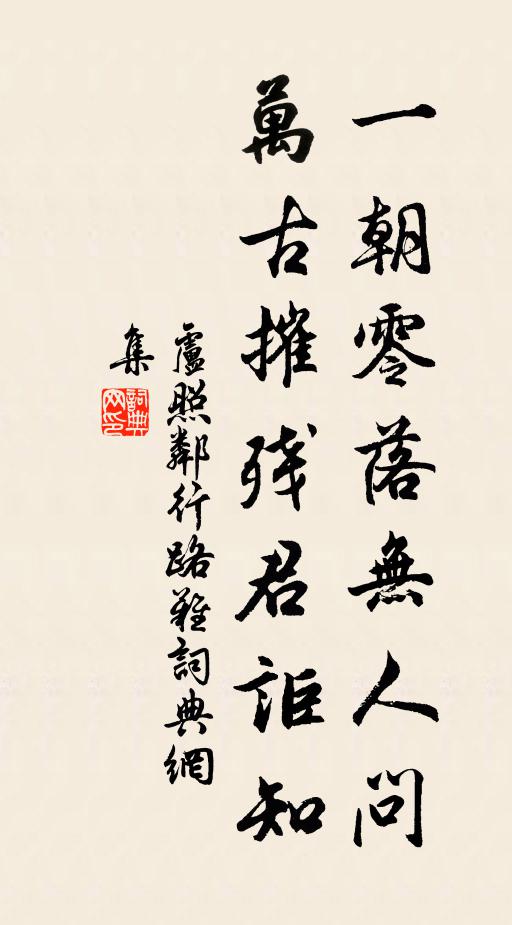 一朝零落無人問
萬古摧残君詎知
盧照鄰行路難詞典網
集
詞典
网印